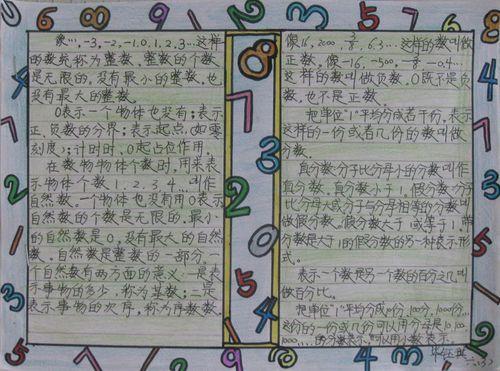 象…，-3，-2，-1，0，1，2，3…这样
的数统称为整数，整数的个数
是无限的，没有最小的整数，也
没有最大的整数。
0表示一个物体也没有；表示
正、负数的分界；表示起点，(如零
刻度)；计时时，0起占位作用。
在数物物体个数时，用来表
示物体个数1．2．3．4…叫作
自然数。一个物体也没有用0表示
自然数的个数是无限的，最小
的自然数是0，没有最大的自然
数。自然数是整数的一部分，一
个自然数有两方面的意义：一是表
示事物的多少，称为基数；二是
表示事物的次序，称为序数数。
像16，200，3/8，6.3…这样的数叫做
正数，像-16，-500，-3/8，-0.4…
这样的数叫做负数，0既不是负
数，也不是正数。
把单位"1"平均分成若干份，表示
这样的一份或者几份的数叫做
分数。
真分数：分子比分母小的分数叫作
真分数，真分数小于1。假分数：分子
比分母大或分子与分母相等的分数叫
做假分数。假分数大于或等于1。带
分数是大于1的假分数的另一种表示形
式。
表示一个数是另一个数的百分之几叫
做百分比。
把单位"1"平均分成10份，100分，1000份…
这份的一份或几份可以用分母是10，100，
1000，…的分数表示，可以用小数表示。